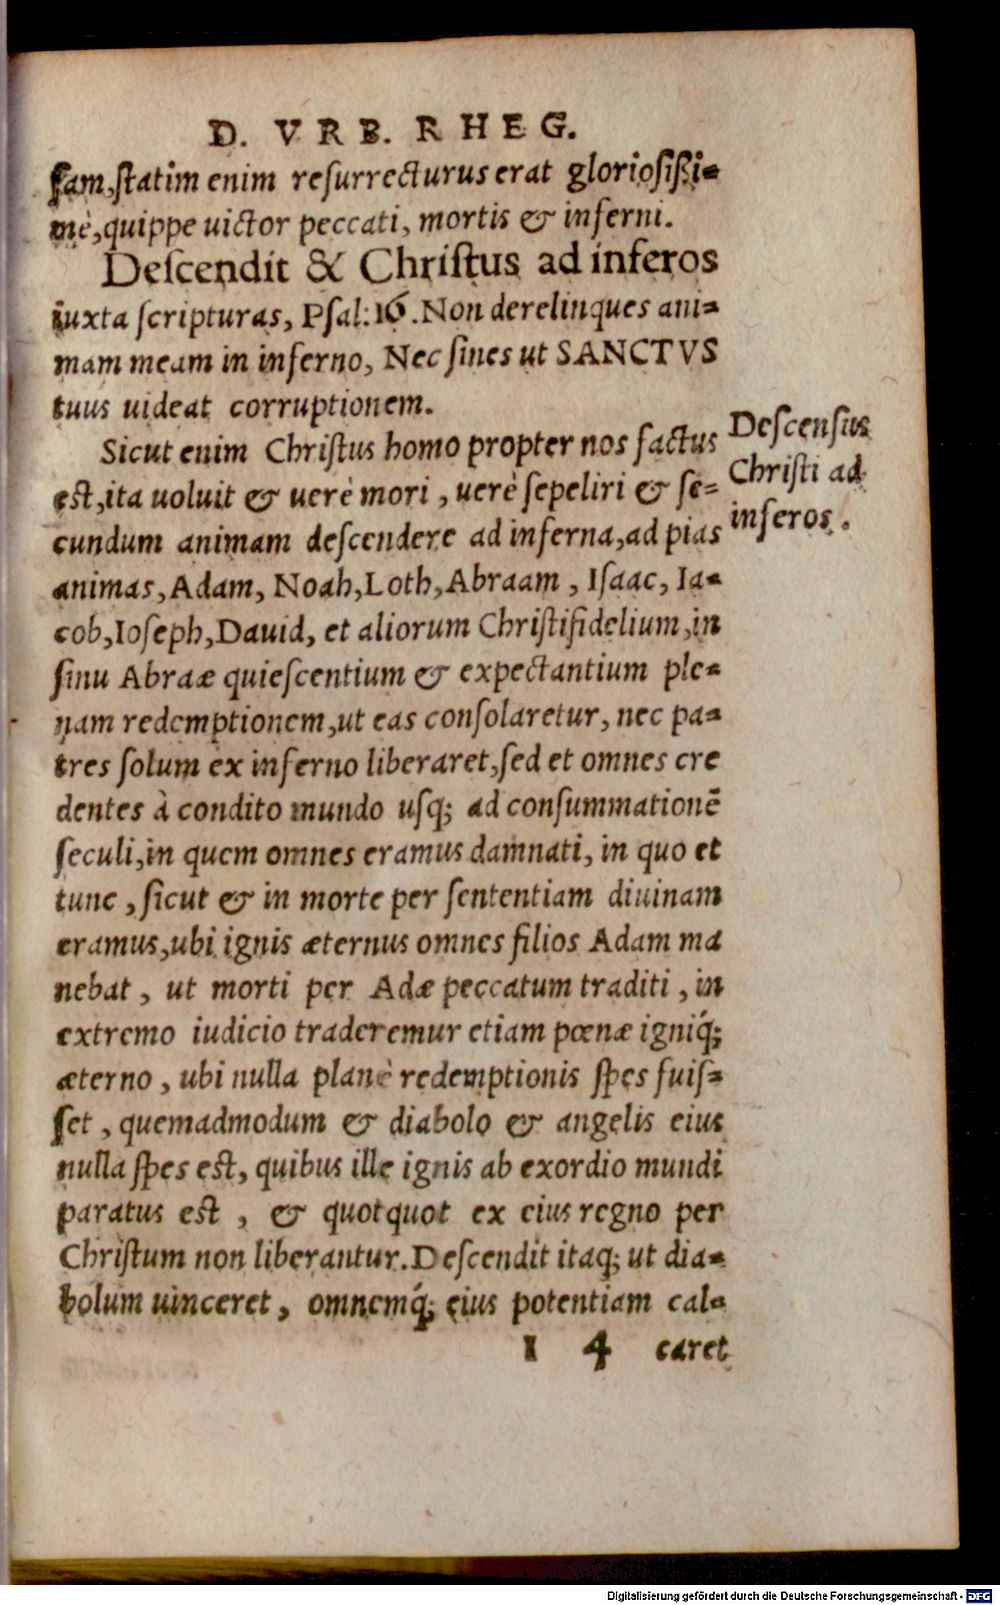 D. VRB. RHEG.
ſam,ſtatim enim reſurrecturus erat glorioſißi-
mè,quippe uictor peccati, mortis & inferni.
Deſcendit & Chriſtus ad inferos
iuxta ſcripturas, Pſal:16.Non derelinques ani-
mam meam in inferno, Nec ſines ut SANCTVS
tuus uideat corruptionem.
Sicut enim Chriſtus homo propter nos factus
eſt,ita uoluit & uerè mori, uerè ſepeliri & ſe-
cundum animam deſcendere ad inferna,ad pias
animas, Adam, Noah,Loth,Abraam, Iſaac, Ia-
cob,Ioſeph,Dauid, et aliorum Chriſtifidelium,in
ſinu Abraæ quieſcentium & expectantium ple-
nam redemptionem,ut eas conſolaretur, nec pa-
tres ſolum ex inferno liberaret,ſed et omnes cre
dentes à condito mundo uſq; ad conſummationē
ſeculi,in quem omnes eramus damnati, in quo et
tunc, ſicut & in morte per ſententiam diuinam
eramus,ubi ignis æternus omnes filios Adam ma
nebat, ut morti per Adæ peccatum traditi, in
extremo iudicio traderemur etiam pœnæ igniq́;
æterno, ubi nulla planè redemptionis ſpes fuiſ-
ſet, quemadmodum & diabolo & angelis eius
nulla ſpes eſt, quibus ille ignis ab exordio mundi
paratus eſt, & quotquot ex eius regno per
Chriſtum non liberantur.Deſcendit itaq; ut dia-
bolum uinceret, omnemq́; eius potentiam cal-
I 4 caret
Deſcenſus
Chriſti ad
inferos.
Digitalisierung gefördert durch die Deutsche Forschungsgemeinschaft - DFG